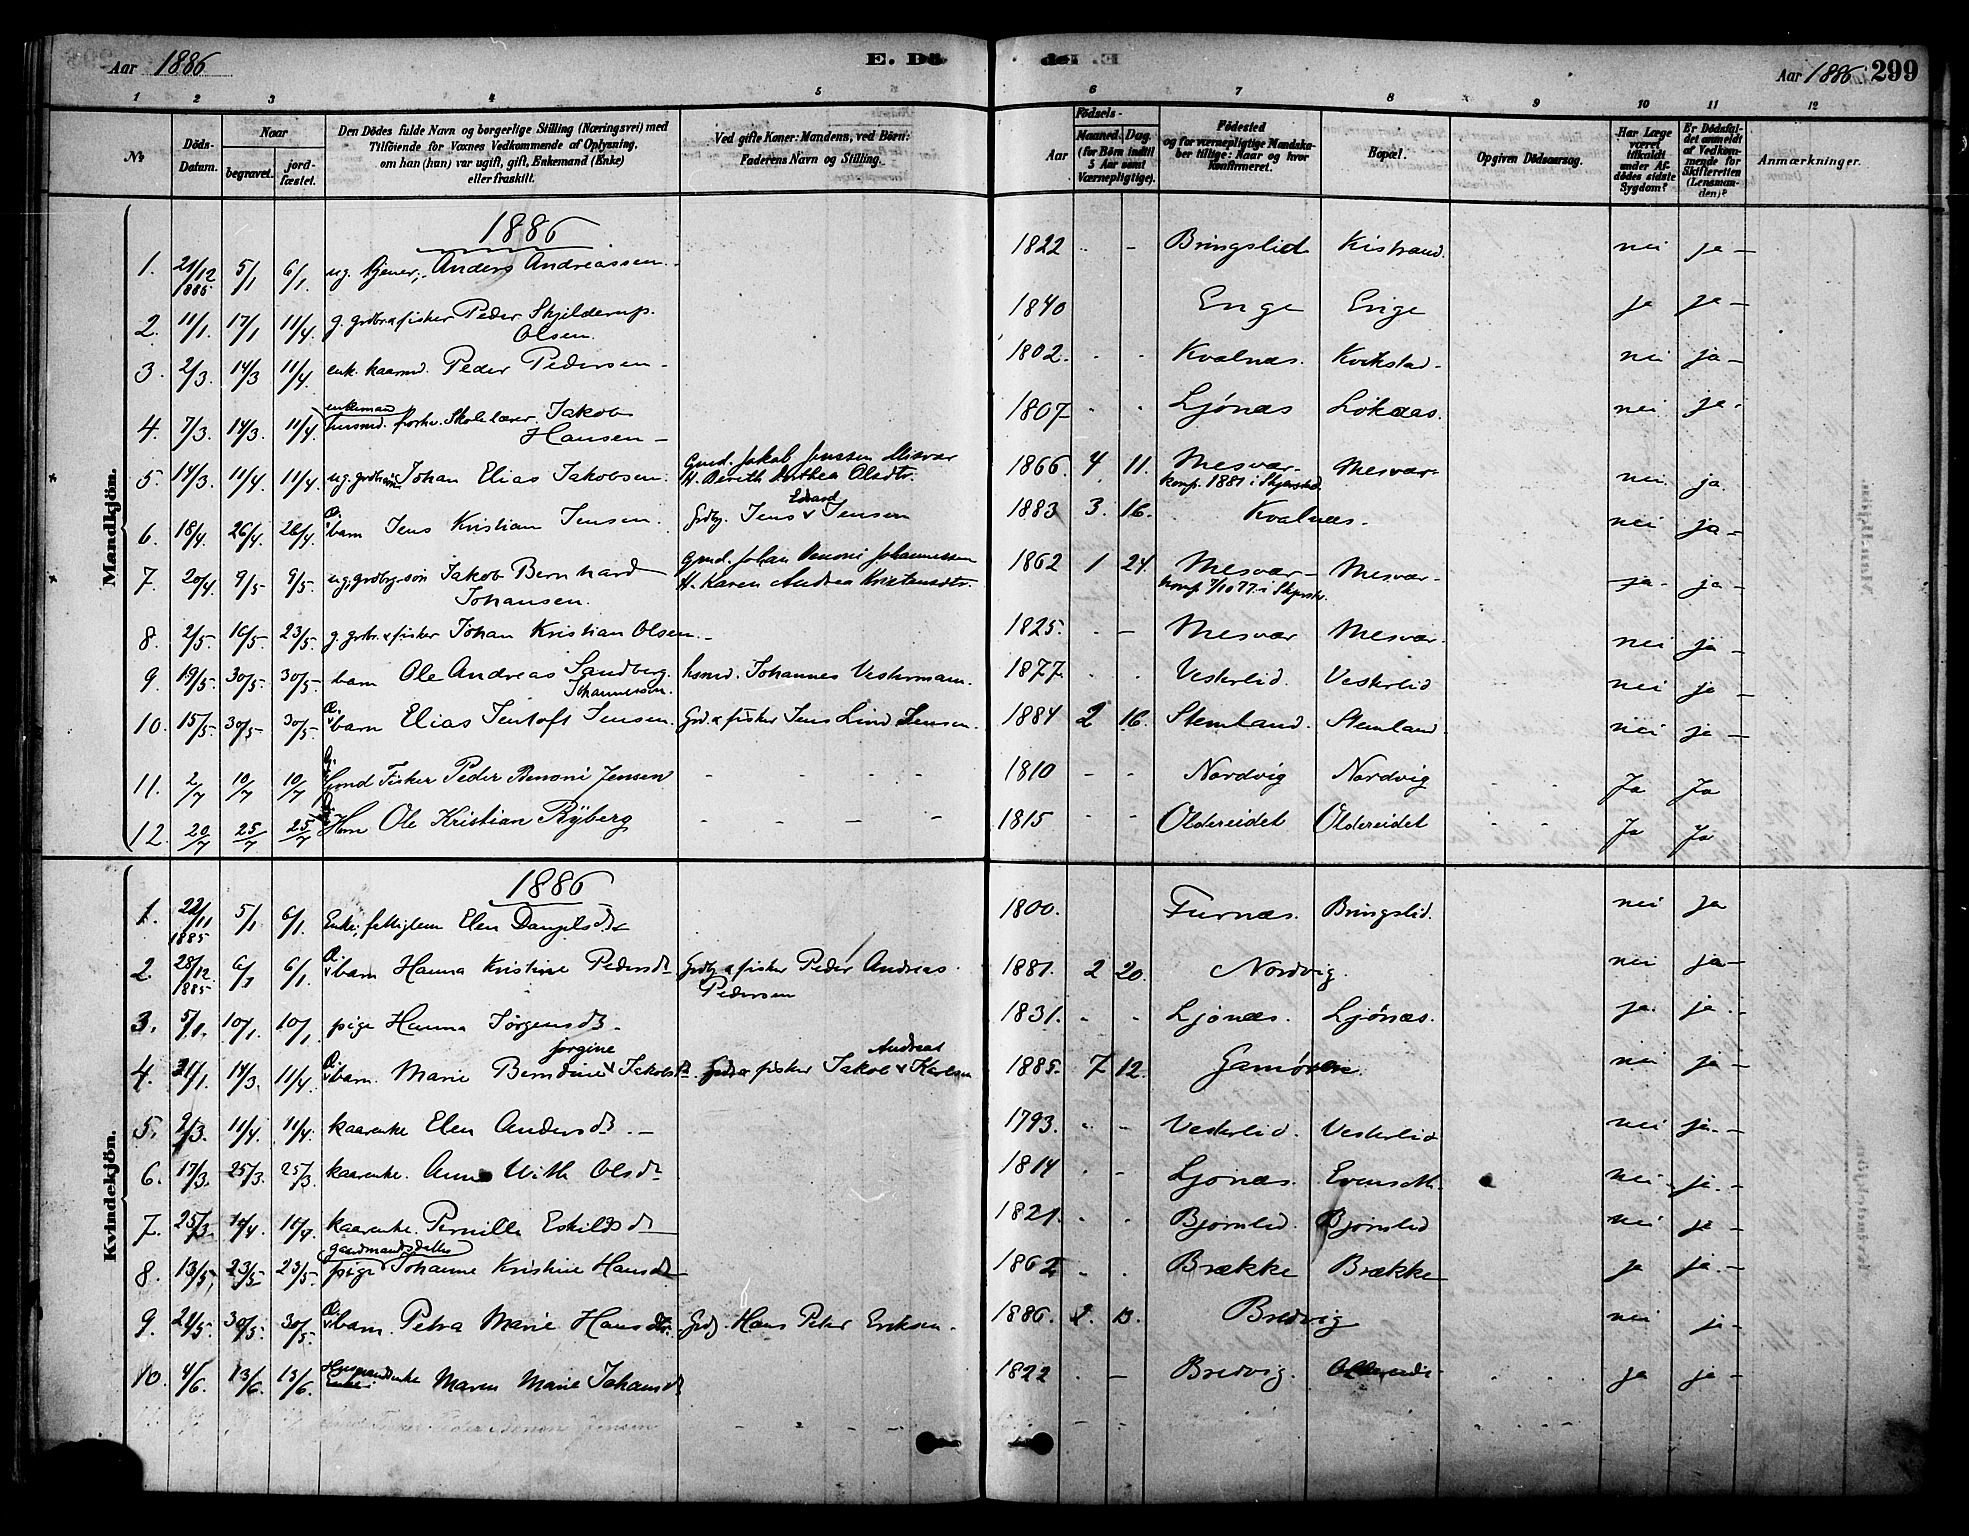 Aar 1886
E. Dö
Aar 1886 299
1 2 3 4 5 6 7 8 9 10 11 12
№
Döds-Datum.
Naar
begravet.
jord-fæstet.
Den Dödes fulde Navn og borgerlige Stilling (Næringsvei) med
Tilföiende for Voxnes Vedkommende af Oplysning,
om han (hun) var ugift, gift, Enkemand (Enke)
eller fraskilt.
Ved gifte Koner: Mandens, ved Börn:
Faderens Navn og Stilling.
Födsels-
Aar
Maaned. Dag.
(for Börn indtil
5 Aar samt
Værnepligtige).
Födested
og for værnepligtige Mandska-
ber tillige: Naar og hvor
konfirmeret.
Bopæl.
Opgiven Dödsaarsag.
Har Læge
været
tilkaldt
under Af-
dödes sidste
Sygdom?
Er Dödsfal-
det anmeldt
af Vedkom-
mende for
Skifteretten
(Lensman-
den)?
Anmærkninger.
Mandkjön.
1886
1. 21/12 1885 5/1 6/1 ug. tjener, Anders Andreassen. 1822 Bringslid Kistrand. nei ja
2. 11/1. 17/1 11/4 g. grdbr & fisker Peder Skjilderup. Olsen. 1840 Enge Enge ja ja
3. 2/3. 14/3 11/4. enk. kaarmd. Peder Pedersen 1802. Kvalnæs. Kvikstad. nei ja
4. 7/3. 14/3. 11/4. enkeman husmd. forhv. Skolelærer. Jakob Hansen 1807 Ljönæs Lökaas. nei ja
5. 14/3. 11/4 11/4. ug. Johan Elias Jakobsen. Gmd. Jakob Jenssen Misvær H. Berith Anthea Olsdtr. 1866. 4 11. Mesvær konf. 1881 i Skjerstad. Mesvær nei ja.
6. 18/4. 26/4. 26/4. barn Jens Kristian Jensen. Grdbr. Jens Edvard Jensen 1883 3. 16. Kvalnæs. nei ja
7. 20/4. 9/5 9/5. ug. grdbr. søn Jakob Bernhard Johansen. Gmd. Johan Benoni Johannessen H. Karen Andrea Kristensdtr. 1862 1 24. Mesvær konf. 7/10 77. i Skjerstd. Mesvær ja ja
8. 2/5. 16/5. 23/5. g. grbr. & fisker Johan Kristian Olsen. 1825. Mesvær Mesvær. nei ja
9. 19/5. 30/5. 30/5. barn Ole Andreas Sandberg. Johannessen. husmd. Johannes Vestermann. 1877. Vesterlid Vesterlid nei ja
10. 15/5. 30/5 30/5. barn Elias Jentoft Jensen. Grd. & fisker Jens Lind Jensen. 1884 2 16. Stemland. Stemland. nei ja
11. 2/7 10/7 10/7 Gmd Fisker Peder Benoni Jensen 1810 Nordvig Nordvig Ja Ja
12. 20/7 25/7 25/7 Hm Ole Kristian Ryberg 1815 Oldereidet Oldereidet Ja Ja
Kvindekjön.
1886
1. 22/11 1885 5/1 6/1. Enke, fattiglem Elen Danjelsdtr 1800. Furnæs. Bringslid. nei ja
2. 28/12. 1885 6/1 6/1. barn Hanna Kristine Pedersdtr Grdbr & fisker Peder Andreas. Pedersen 1881. 2 20. Nordvig. nei ja
3. 5/1. 10/1. 10/1. pige Hanna Jörgensdtr. 1831. Ljönæs. Ljönæs. ja. ja.
4. 21/1. 14/3. 11/4. barn. Marie Berntine Jorgine Jakobsdtr. Grd. & fisker Jakob Andreas Karlsen 1885. 7 12. nei ja
5. 2/3. 11/4. 11/4. kaarenke Elen Andersdtr. 1793. Vesterlid. Vesterlid nei ja.
6. 17/3. 25/3. 25/3. kaarenke. Anne With Olsdtr 1814 Ljönæs. nei ja.
7. 25/3. 11/4. 11/4. kaarenke Pernille Eskildsdtr 1821. Bjørnlid. Bjørnlid nei ja
8. 13/5. 23/5. 23/5. gaardmandsdatter pige Johanne Kristine Hansdtr 1862. Brække Brække ja ja.
9. 21/5. 30/5. 30/5. barn. Petra Marie Hansdtr. Grdbr. Hans Peter Eriksen. 1886. 2. 13. Bredvig nei ja
10. 4/6. 13/6. 13/6. Husmandsenke Maren Marie Johansdtr 1822 Bredvig. ja ja